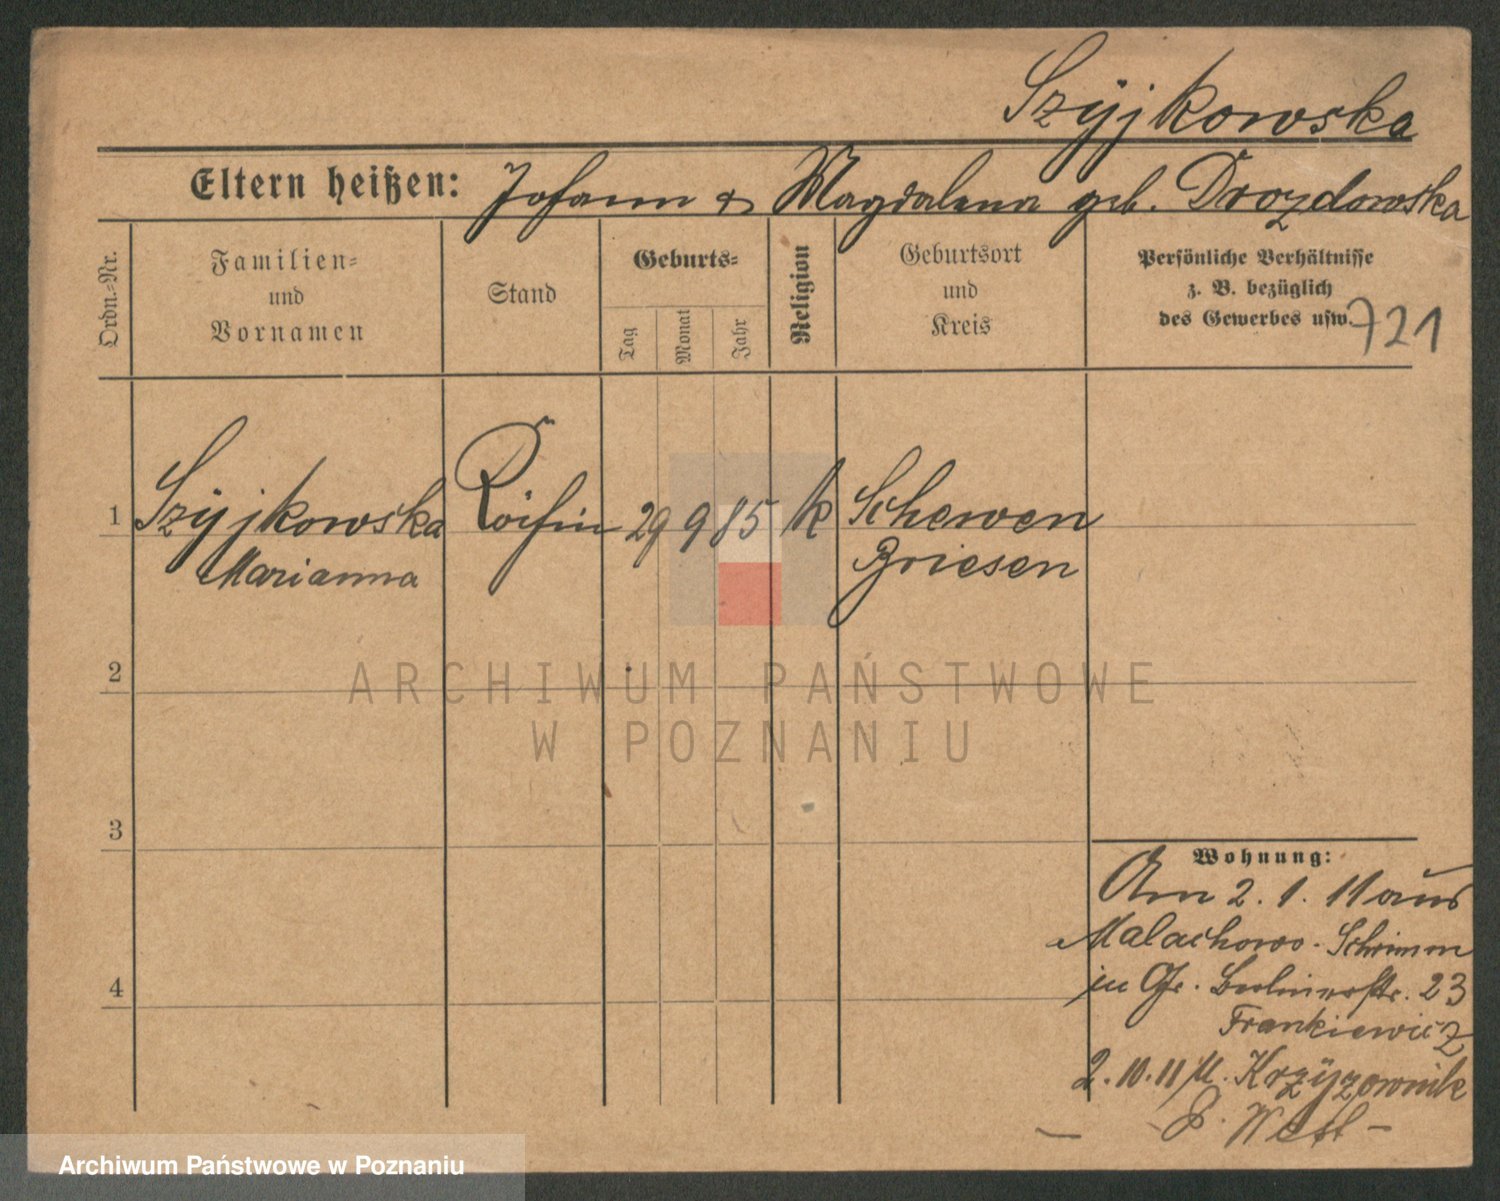 Szÿjkowska
Eltern heißen: Johann & Magdalena geb. Drozdowska
Ordn.-Nr.
Familien-
und
Vornamen
Stand
Geburts-
Tag
Monat
Jahr
Religion
Geburtsort
und
Kreis
Persönliche Verhältnisse
z. B. bezüglich
des Gewerbes usw.
721
1 Szÿjkowska Köchin 29 9 85 k Schewen
Marianna Briesen
2
3
4
Wohnung:
Am 2. 1. 11 aus
Malachowo - Schrimm
in Gr. Berlinerstr. 23
Frankiewicz
2. 10. 11 n. Krzÿzownik
P. West
ARCHIWUM PAŃSTWOWE
W POZNANIU
Archiwum Państwowe w Poznaniu